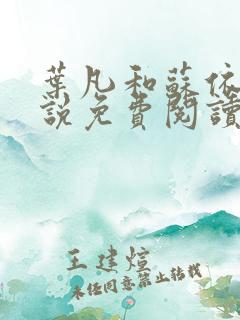 葉凡和蘇依
說免費閱讀
王建煊
未经同意禁止转载